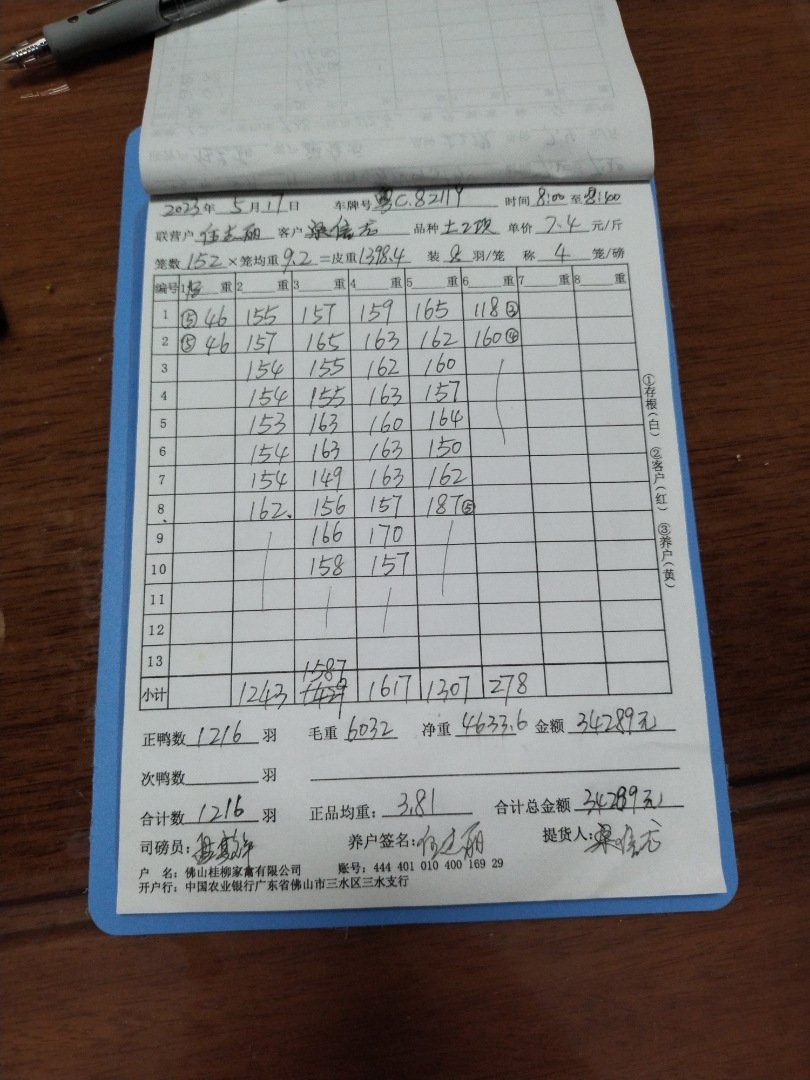 2023年 5月17日 车牌号 粤C.82119 时间 8:00 至 8:40
联营户 任志丽 客户 梁信方 品种 土2项 单价 7.4 元/斤
笼数 152 ×笼均重 9.2 =皮重 1398.4 装 8 羽/笼 称 4 笼/磅
编号 1 重 2 重 3 重 4 重 5 重 6 重 7 重 8 重
1 ⑤ 46 155 157 159 165 118 ③
2 ⑤ 46 157 165 163 162 160 ④
3 154 155 162 160
4 154 155 163 157
5 153 163 160 164
6 154 163 163 150
7 154 149 163 162
8 162 156 157 187 ⑤
9 166 170
10 158 157
11
12
13 1587
小计 1243 1617 1307 278
正鸭数 1216 羽 毛重 6032 净重 4633.6 金额 34289元
次鸭数 羽
合计数 1216 羽 正品均重: 3.81 合计总金额 34289元
司磅员: 养户签名: 任志丽 提货人: 梁信方
户 名: 佛山桂柳家禽有限公司 账号: 444 401 010 400 169 29
开户行: 中国农业银行广东省佛山市三水区三水支行
①存根(白) ②客户(红) ③养户(黄)